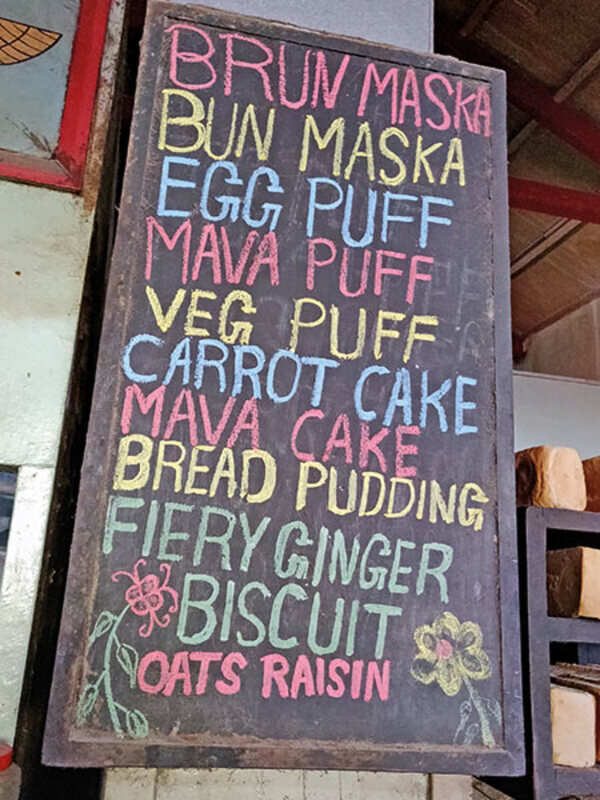 BRUN MASKA
BUN MASKA
EGG PUFF
MAVA PUFF
VEG PUFF
CARROT CAKE
MAVA CAKE
BREAD PUDDING
FIERY GINGER
BISCUIT
OATS RAISIN